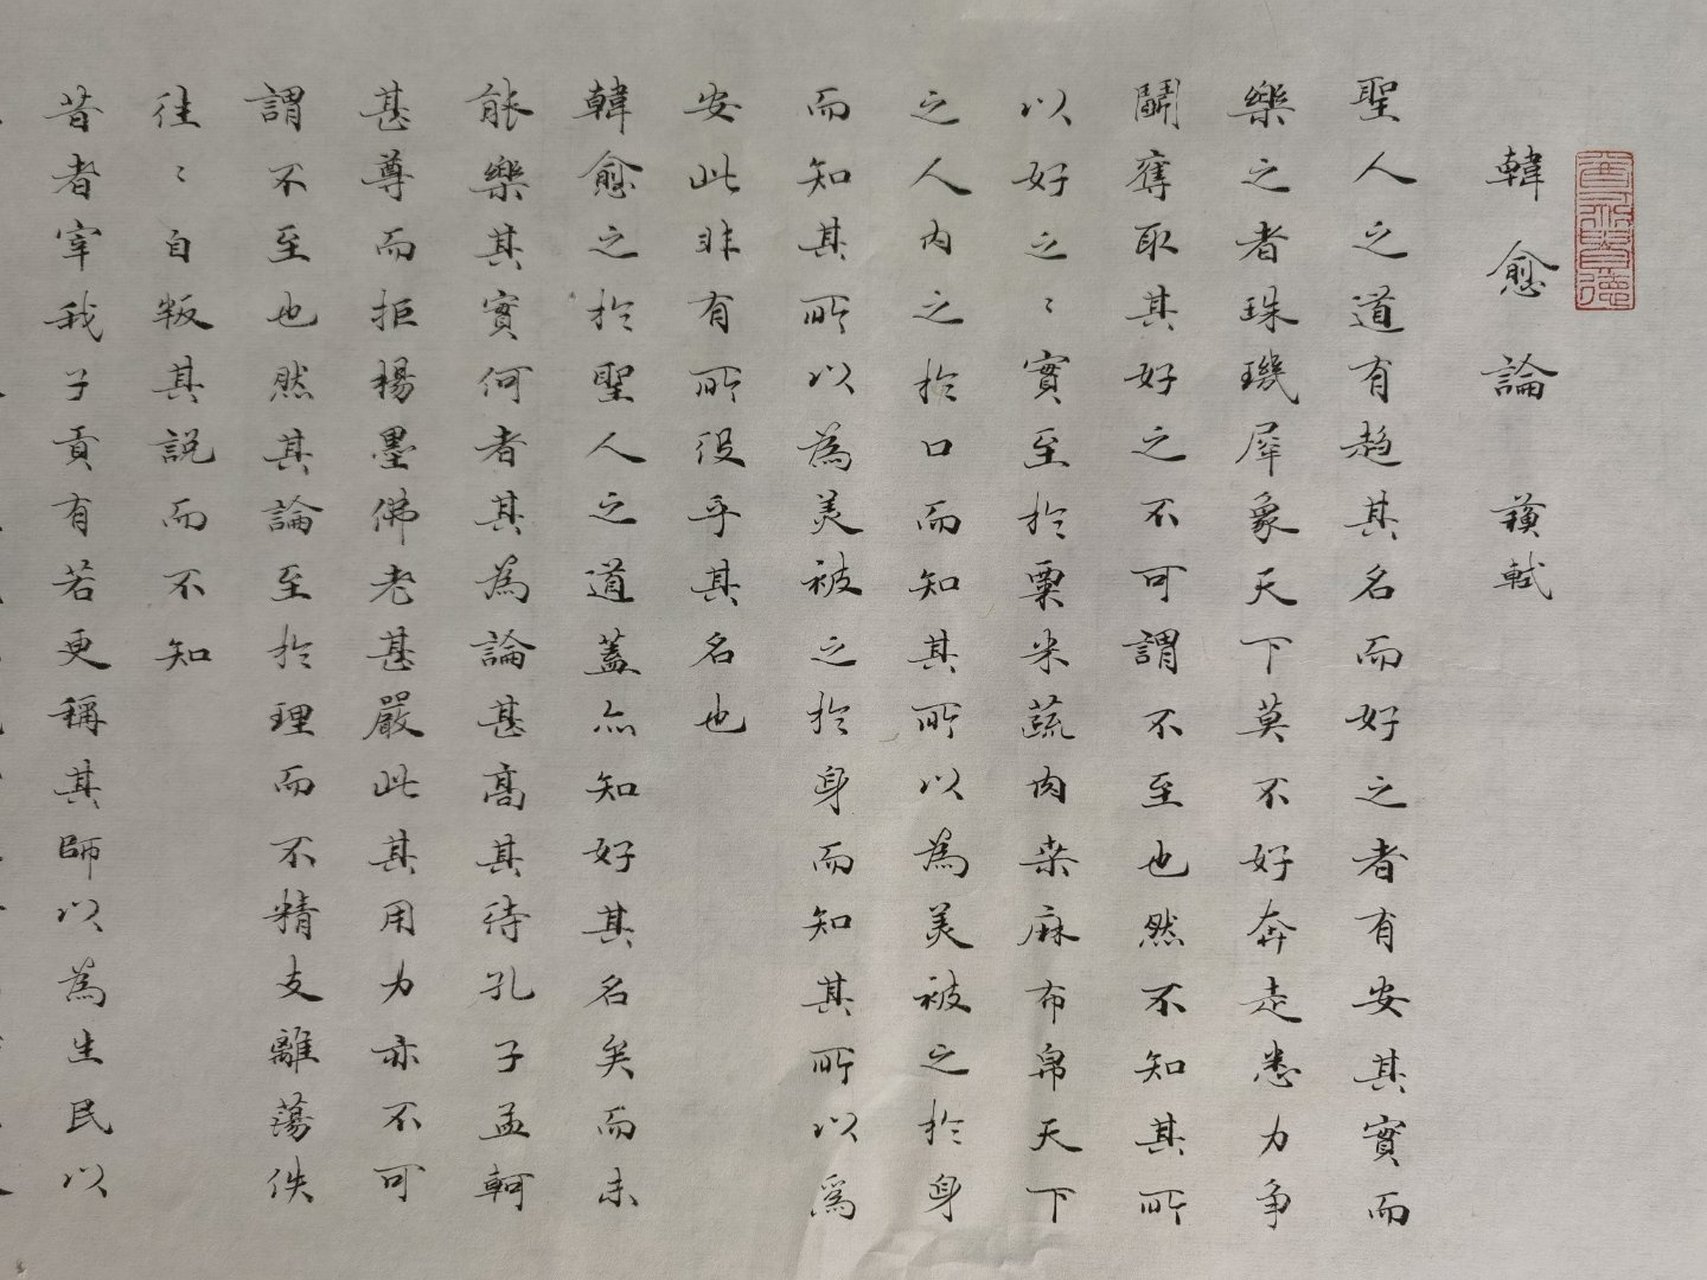 韓愈論 蘇軾
聖人之道有趋其名而好之者有安其實而
樂之者珠璣犀象天下莫不好奔走悉力争
鬭奪取其好之不可謂不至也然不知其所
以好之〻實至於粟米蔬肉桒麻布帛天下
之人内之於口而知其所以為美被之於身
而知其所以為美被之於身而知其所以爲
安此非有所役乎其名也
韓愈之於聖人之道蓋亦知好其名矣而未
能樂其實何者其為論甚高其待孔子孟軻
甚尊而拒楊墨佛老甚嚴此其用力亦不可
謂不至也然其論至於理而不精支離蕩佚
往〻自叛其説而不知
昔者宰我子貢有若更稱其師以為生民以